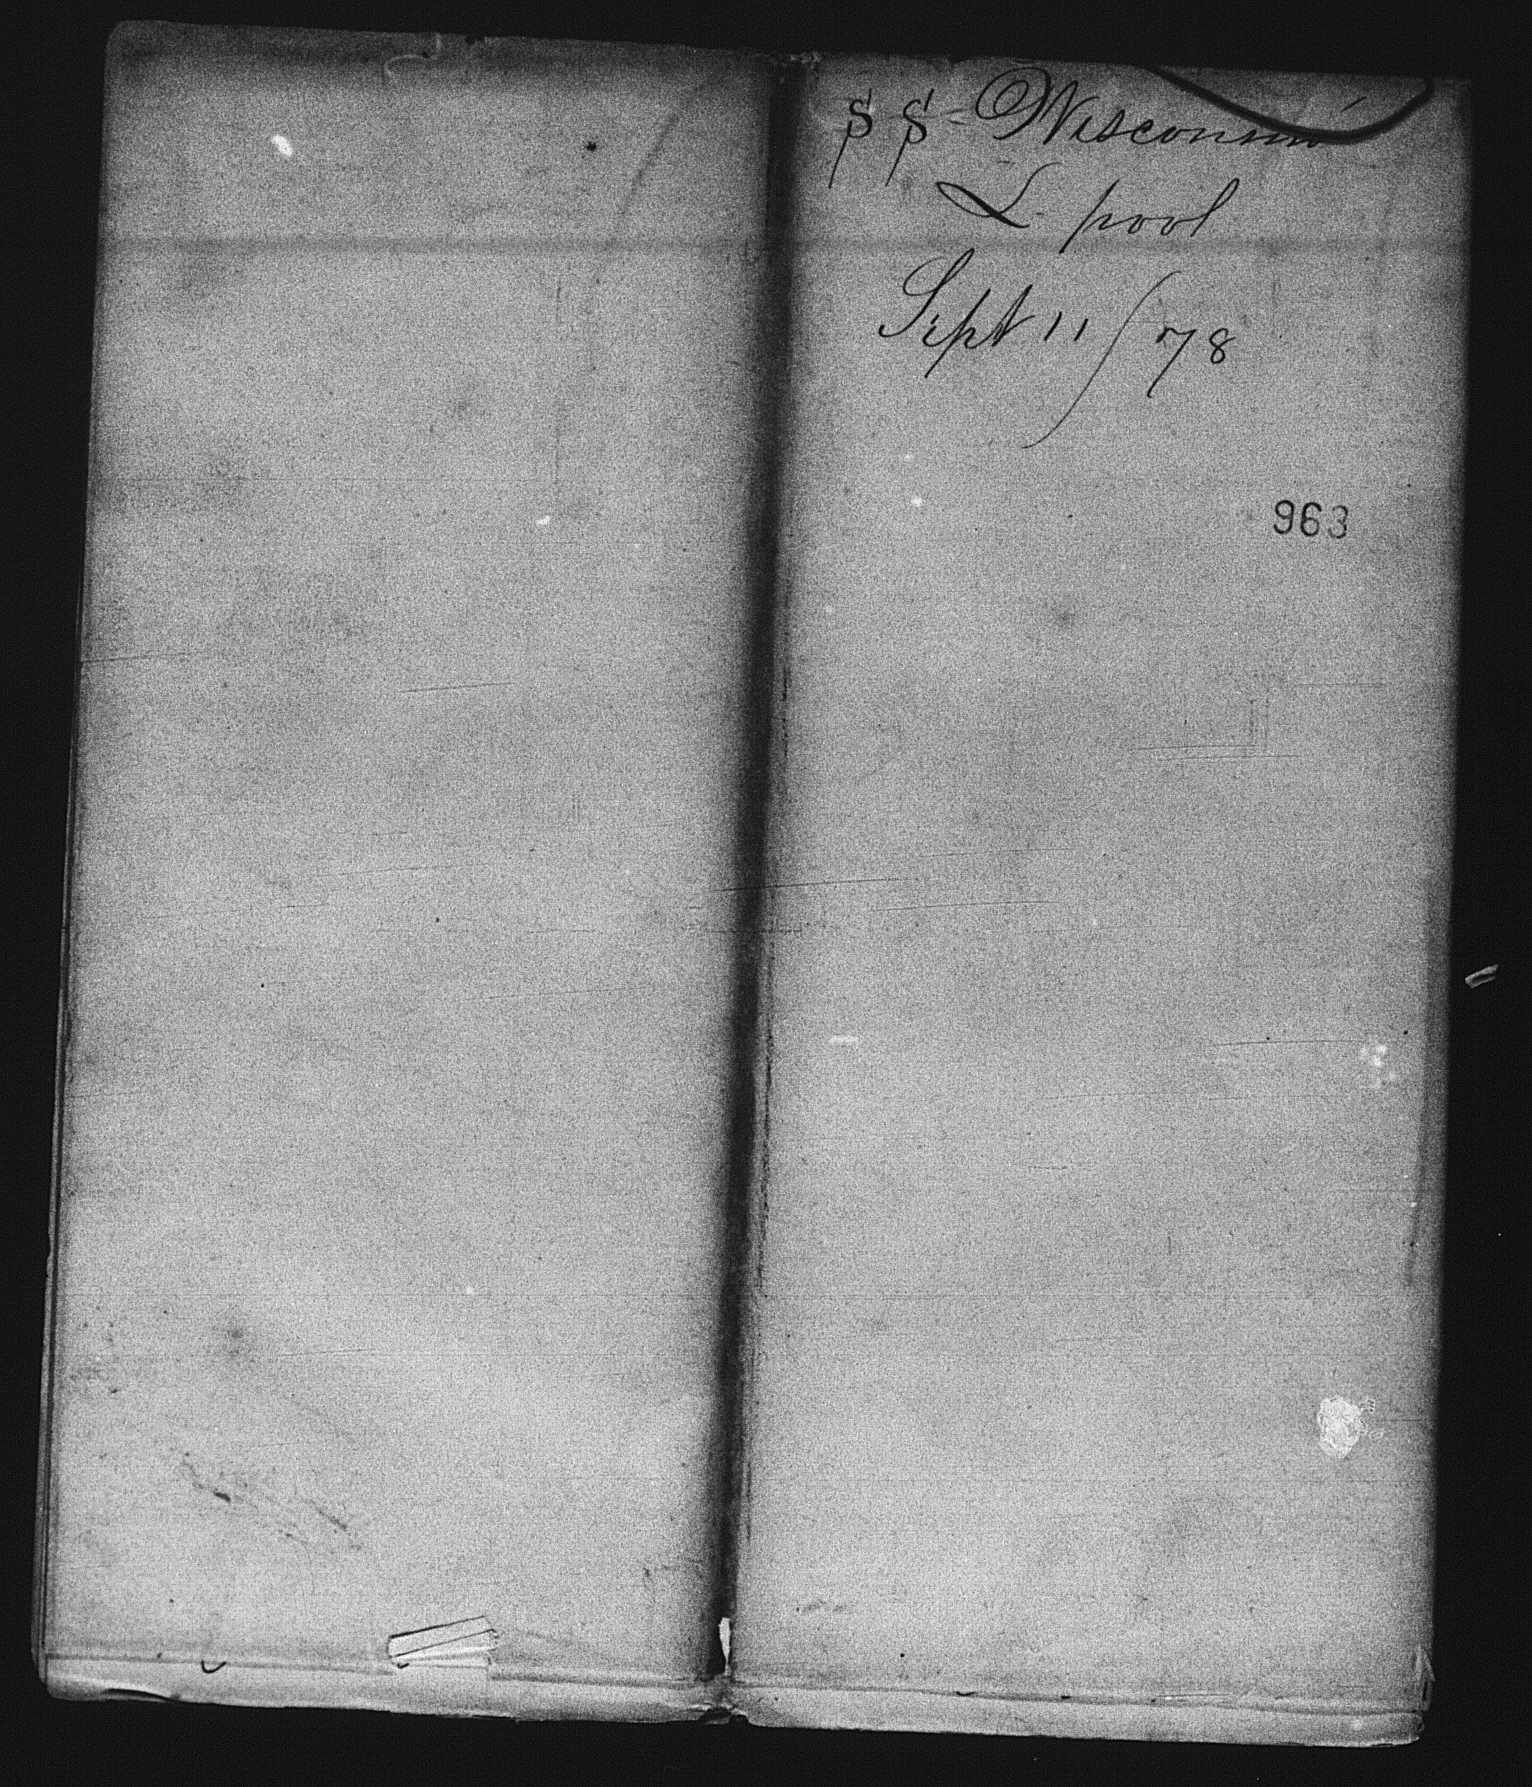 SS - Wisconsin
L pool
Sept 11 / 78
963